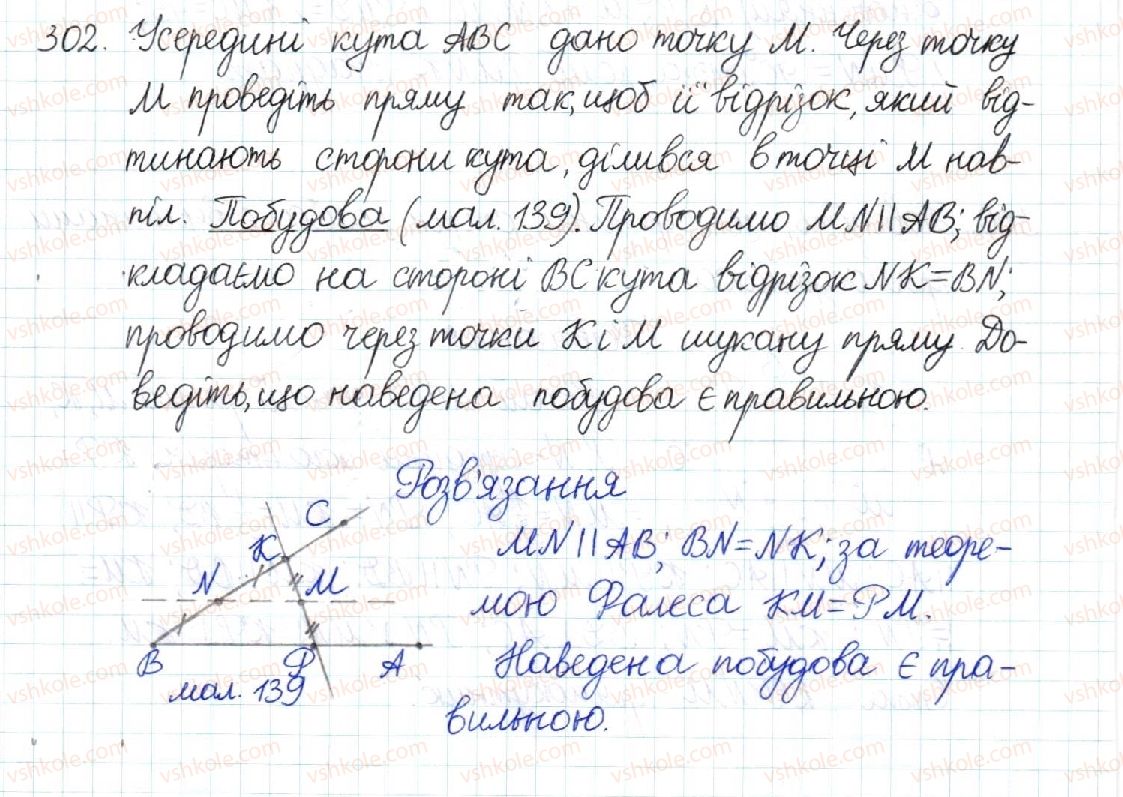 302. Усередині кута ABC дано точку M. Через точку
M проведіть пряму так, щоб її відрізок, який від-
тинають сторони кута, ділився в точці M нав-
піл. Побудова (мал. 139). Проводимо MN||AB; від-
кладаємо на стороні BC кута відрізок NK=BN;
проводимо через точки K і M шукану пряму. До-
ведіть, що наведена побудова є правильною.
Розв'язання
MN||AB; BN=NK; за теоре-
мою Фалеса KM=PM.
Наведена побудова є пра-
вильною.
C
K
N
M
B
P
A
мал. 139
vshkole.com